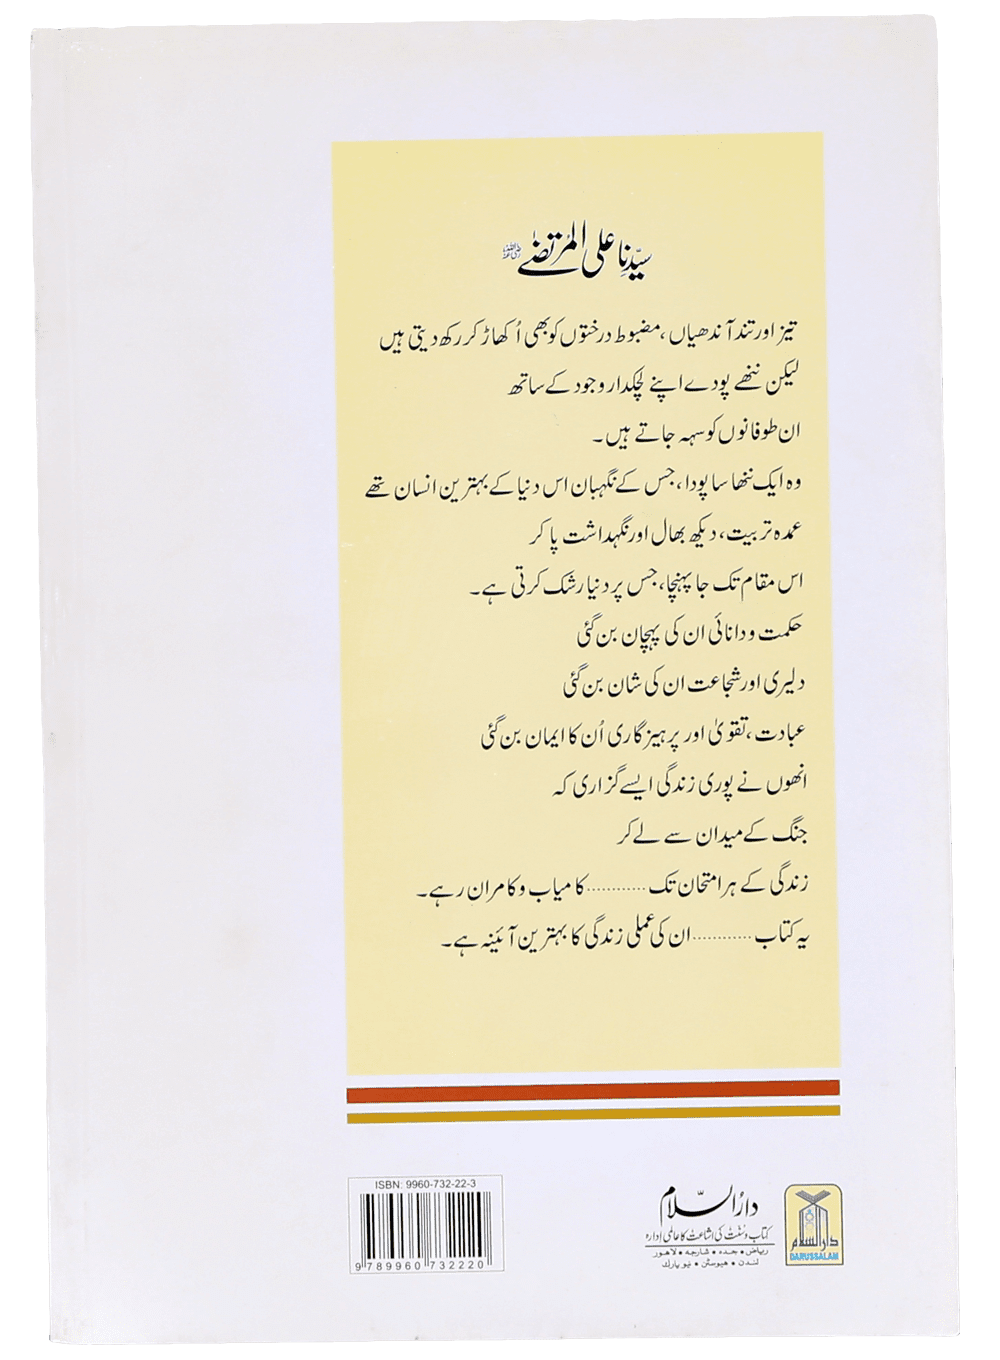 سیّدِنا علی المرتضےٰ رضی اللہ عنہ
تیز اور تند آندھیاں، مضبوط درختوں کو بھی اُکھاڑ کر رکھ دیتی ہیں
لیکن ننھے پودے اپنے لچکدار وجود کے ساتھ
ان طوفانوں کو سہہ جاتے ہیں۔
وہ ایک ننھا سا پودا، جس کے نگہبان اس دنیا کے بہترین انسان تھے
عمدہ تربیت، دیکھ بھال اور نگہداشت پا کر
اس مقام تک جا پہنچا، جس پر دنیا رشک کرتی ہے۔
حکمت و دانائی ان کی پہچان بن گئی
دلیری اور شجاعت ان کی شان بن گئی
عبادت، تقویٰ اور پرہیزگاری اُن کا ایمان بن گئی
انھوں نے پوری زندگی ایسے گزاری کہ
جنگ کے میدان سے لے کر
زندگی کے ہر امتحان تک ............ کامیاب و کامران رہے۔
یہ کتاب ............ ان کی عملی زندگی کا بہترین آئینہ ہے۔
ISBN: 9960-732-22-3
9 789960 732220
دارُالسّلام
کتاب و سُنّت کی اشاعت کا عالمی ادارہ
ریاض • جدہ • شارجہ • لاہور
لندن • ہیوسٹن • نیو یارک
دارالسلام
DARUSSALAM